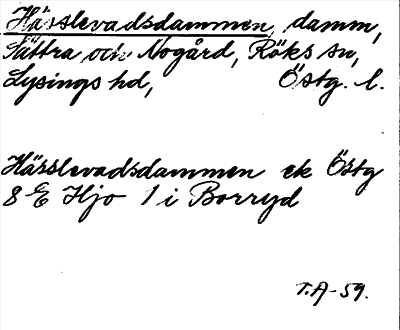 Hässlevadsdammen, damm,
Sättra och Nogård, Röks sn,
Lysings hd, Östg. l.
Hässlevadsdammen ek Östg
8 E Hjo 1 i Borryd
T.A-59.